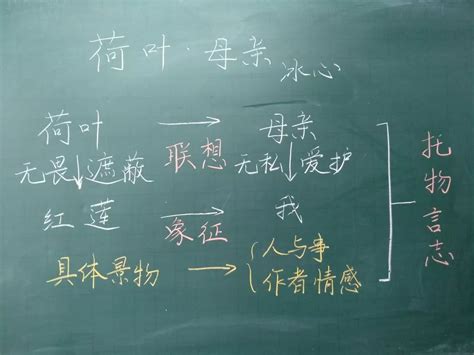 荷叶·母亲 冰心
荷叶 → 母亲
无畏↓遮蔽 联想 无私↓爱护
红莲 → 我
象征
具体景物 → { 人与事
作者情感
托物言志